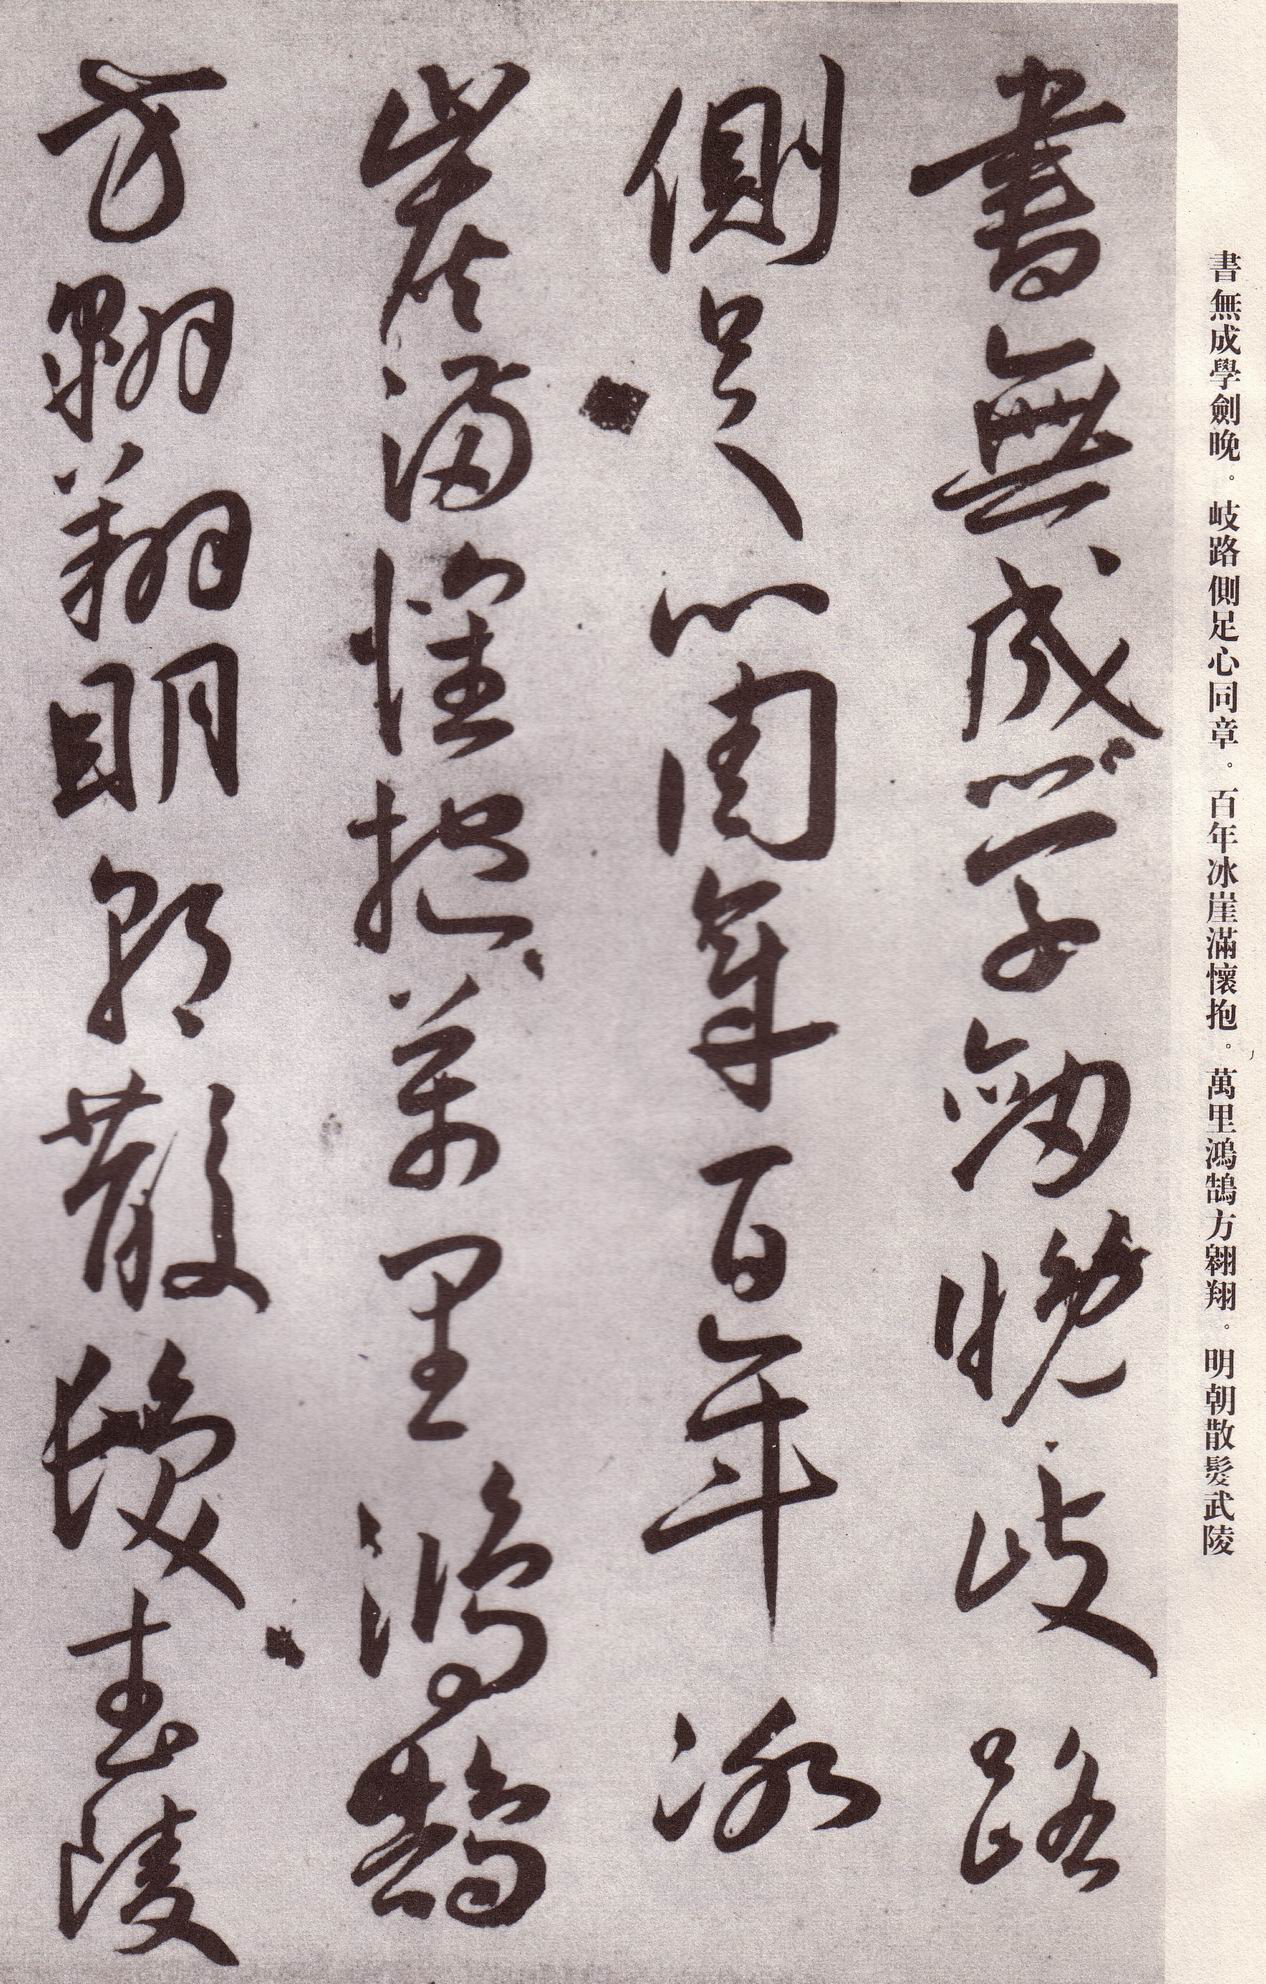 書無成學劍晚。岐路側足心同章。百年冰崖滿懷抱。萬里鴻鵠方翱翔。明朝散髮武陵
書無成學劍晚岐路
側足心周章百年冰
炭滿懷抱萬里鴻鵠
方翱翔明朝散髮武陵